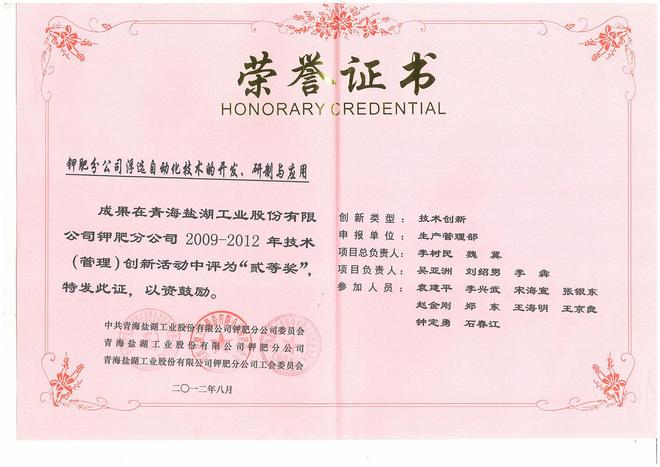 荣誉证书
HONORARY CREDENTIAL
钾肥分公司浮选自动化技术的开发、研制与应用
成果在青海盐湖工业股份有限
公司钾肥分公司 2009-2012 年技术
（管理）创新活动中评为“贰等奖”，
特发此证，以资鼓励。
中共青海盐湖工业股份有限公司钾肥分公司委员会
青海盐湖工业股份有限公司钾肥分公司
青海盐湖工业股份有限公司钾肥分公司工会委员会
二〇一二年八月
创新类型：技术创新
申报单位：生产管理部
项目总负责人：李树民 魏冀
项目负责人：吴亚洲 刘绍男 李犇
参加人员：袁建平 李兴武 宋海宣 张银东
赵金刚 郑东 王海明 王京良
钟定勇 石春江